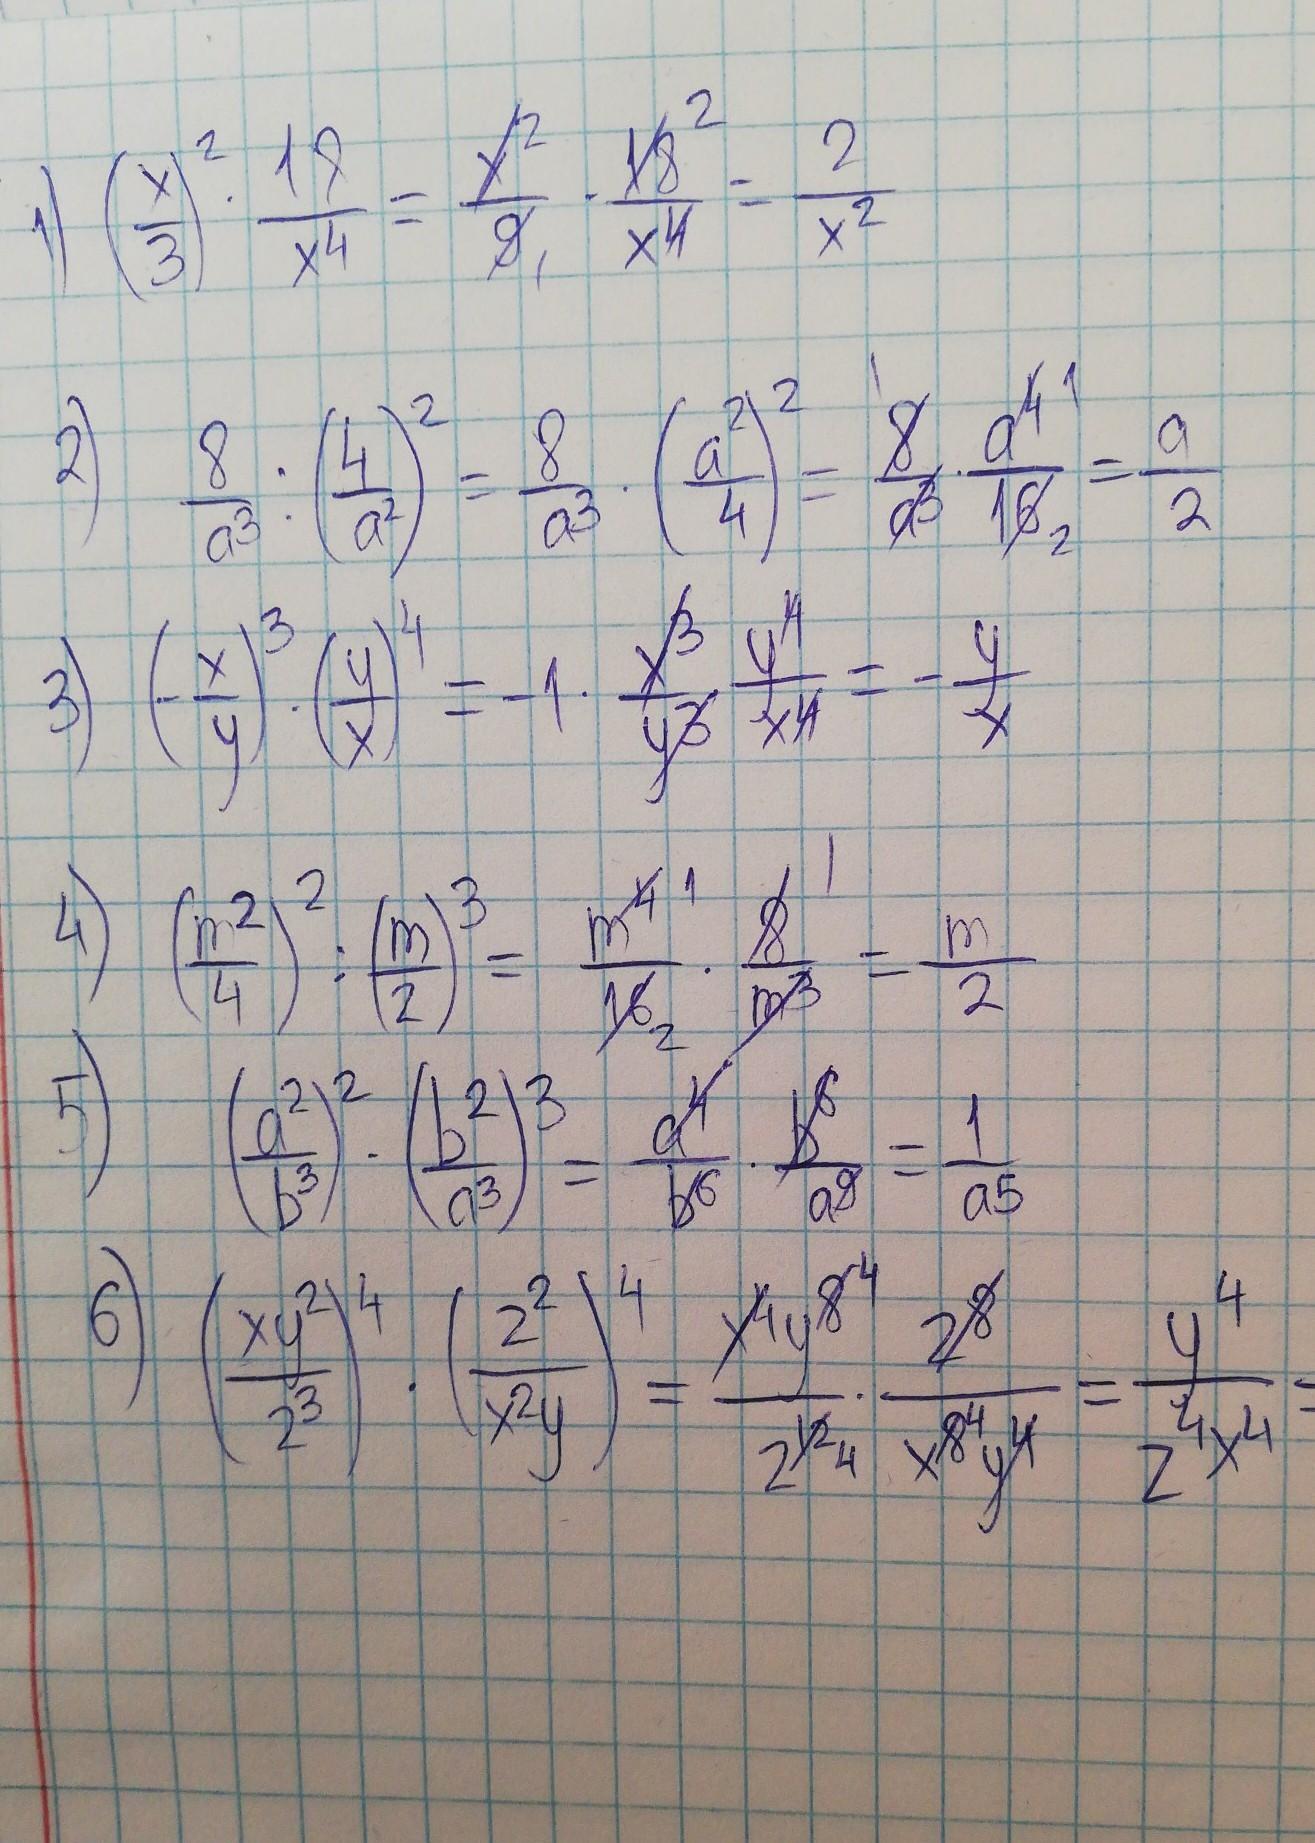 1) (x/3)² · 18/x⁴ = x²/9₁ · 18²/x⁴ = 2/x²
2) 8/a³ : (4/a²)² = 8/a³ · (a²/4)² = ¹8/a³ · a⁴ ¹/16₂ = a/2
3) (-x/y)³ · (y/x)⁴ = -1 · x³/y³ · y⁴/x⁴ = -y/x
4) (m²/4)² : (m/2)³ = m⁴ ¹/16₂ · 8 ¹/m³ = m/2
5) (a²/b³)² · (b²/a³)³ = a⁴/b⁶ · b⁶/a⁹ = 1/a⁵
6) (xy²/2³)⁴ · (2²/x²y)⁴ = x⁴y⁸ ⁴/2¹² ⁴ · 2⁸/x⁸ ⁴y⁴ = y⁴/2⁴x⁴ =